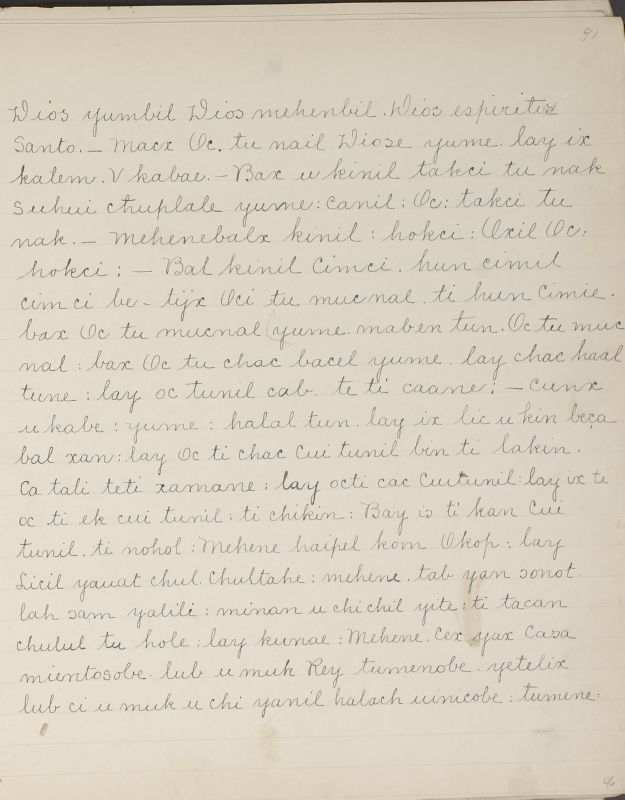 91
Dios yumbil Dios mehenbil. Dios espiritu
Santo. — Macx Oc. tu nail Diose yume. lay ix
kalem. V kabae. — Bax u kinil takci tu nak
suhui chuplale yume: Canil: Oc: takci tu
nak. — Mehenebalx kinil: hokci: Oxil Oc:
hokci: — Bal kinil Cimci. hun cimil
cim ci be - tijx Oci tu mucnal. ti hun Cimie.
bax Oc tu mucnal (yume. maben tun. Oc tu muc
nal: bax Oc tu chac bacel yume. lay chac haal
tune: lay oc tunil cab. te ti caane: — Cunx
u kabe: yume: halal tun. lay ix lic u kin beça
bal xan: lay Oc ti chac Cui tunil bin ti lakin.
Ca tali teti xamane: lay octi cac Cuitunil: lay ix te
oc ti ek cui tunil: ti chikin: Bay is ti kan Cui
tunil. ti nohol: Mehene haipel kom Okop: lay
Licil yauat chul. Chultahe: mehene. tab yan ɔonot.
lah ɔam yalili: minan u chi chil yite: ti tacan
chulul tu hole: lay kunae: Mehene. Cex yax Casa
mientosobe. lub u muk Rey tumenobe. yetelix
lub ci u muk u chi yanil halach uinicobe: tumene:
46